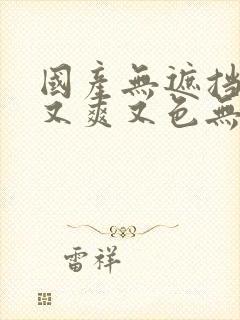 國產無遮挡
又爽又色無
雷祥